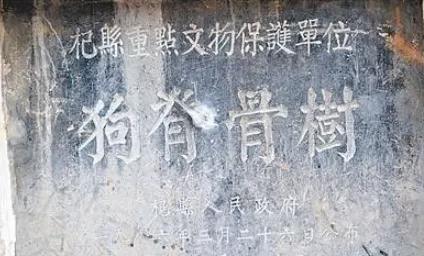 杞縣重點文物保護單位
狗脊骨樹
杞縣人民政府
年三月二十六日公布